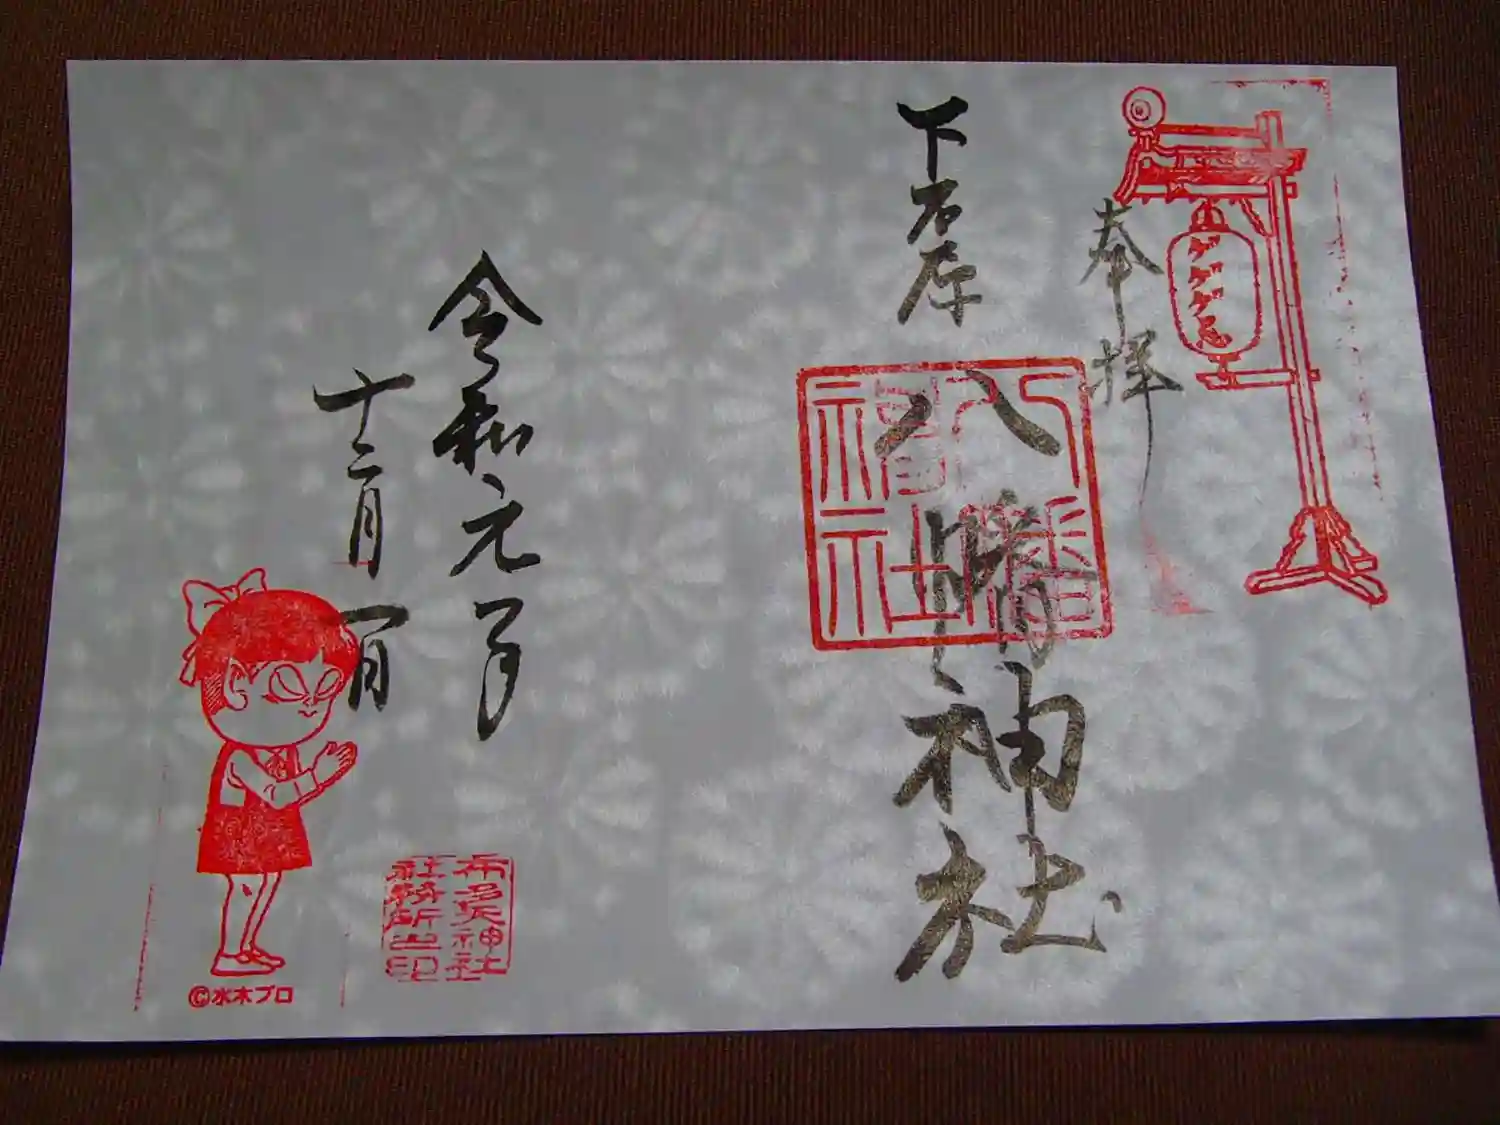 奉拝
ゲゲゲ忌
下石原
八幡神社
八幡
神社
令和元年
十二月一日
布多天神社
社務所之印
©水木プロ